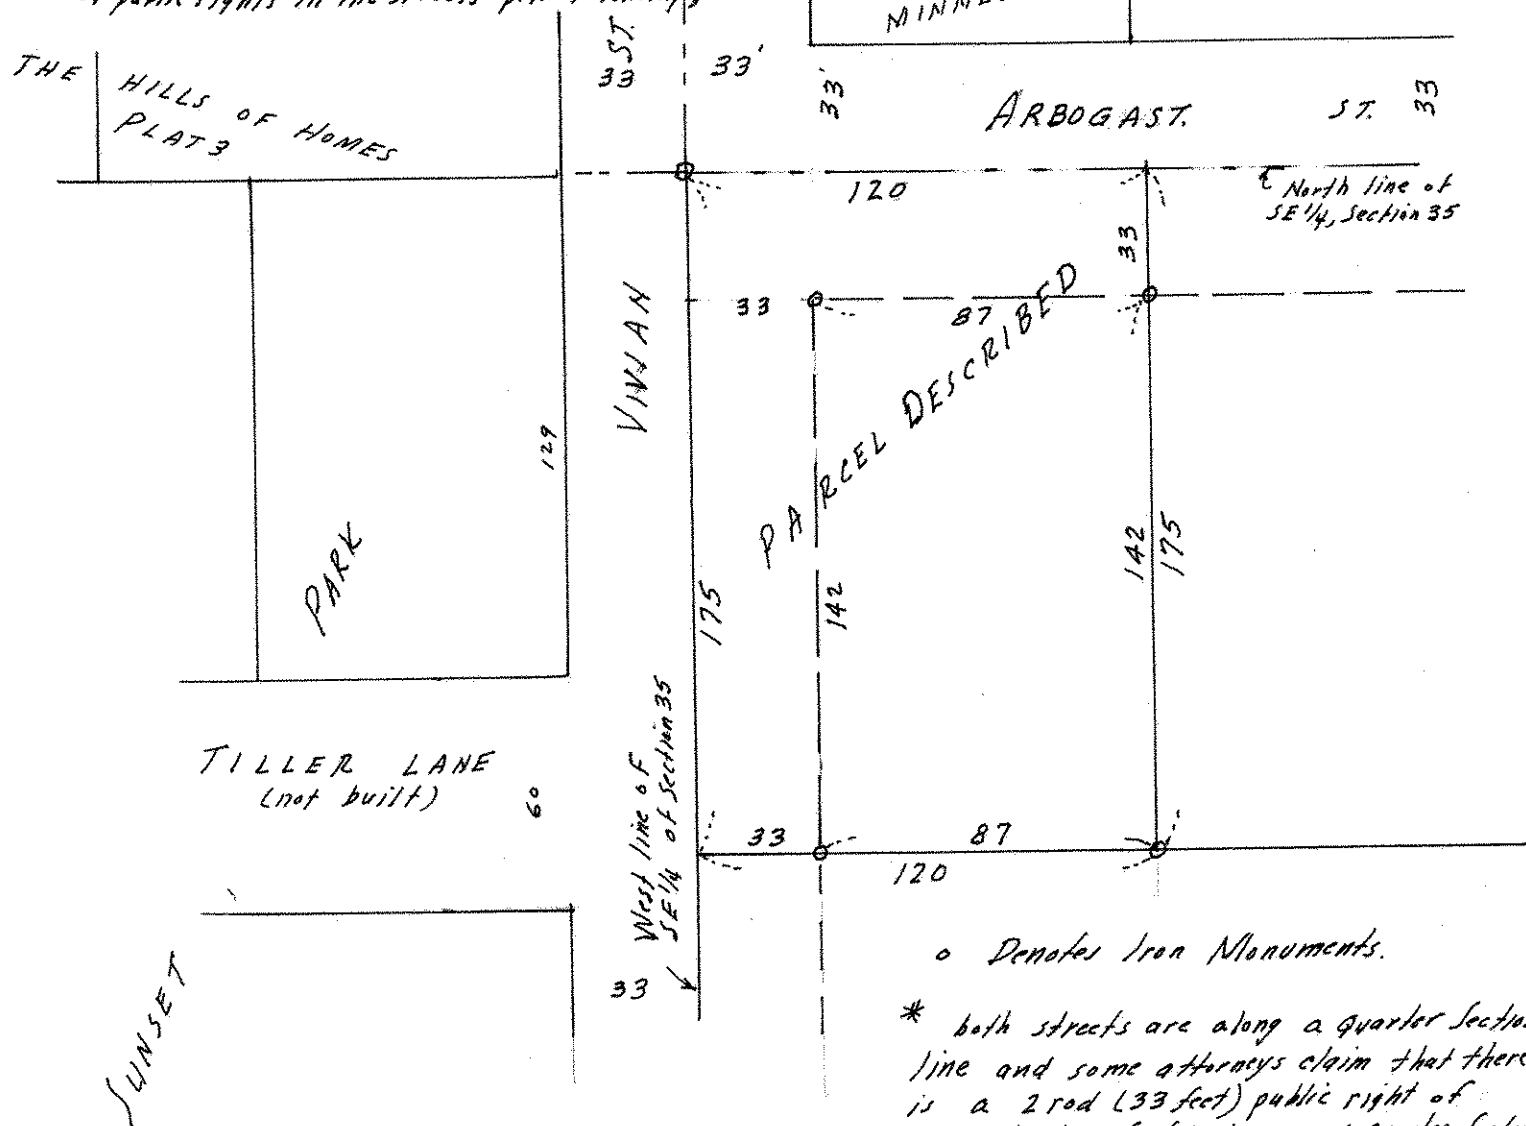 public rights in the streets
MINNE
THE HILLS OF HOMES
PLAT 3
ST.
33
33'
33'
ARBOGAST. ST.
33
120
North line of
SE 1/4, Section 35
33
33
87
VIVIAN
129
PARCEL DESCRIBED
PARK
175
142
142
175
TILLER LANE
(not built)
60
West line of
SE 1/4 of Section 35
33
33
87
120
SUNSET
o Denotes Iron Monuments.
* both streets are along a Quarter Section
line and some attorneys claim that there
is a 2 rod (33 feet) public right of